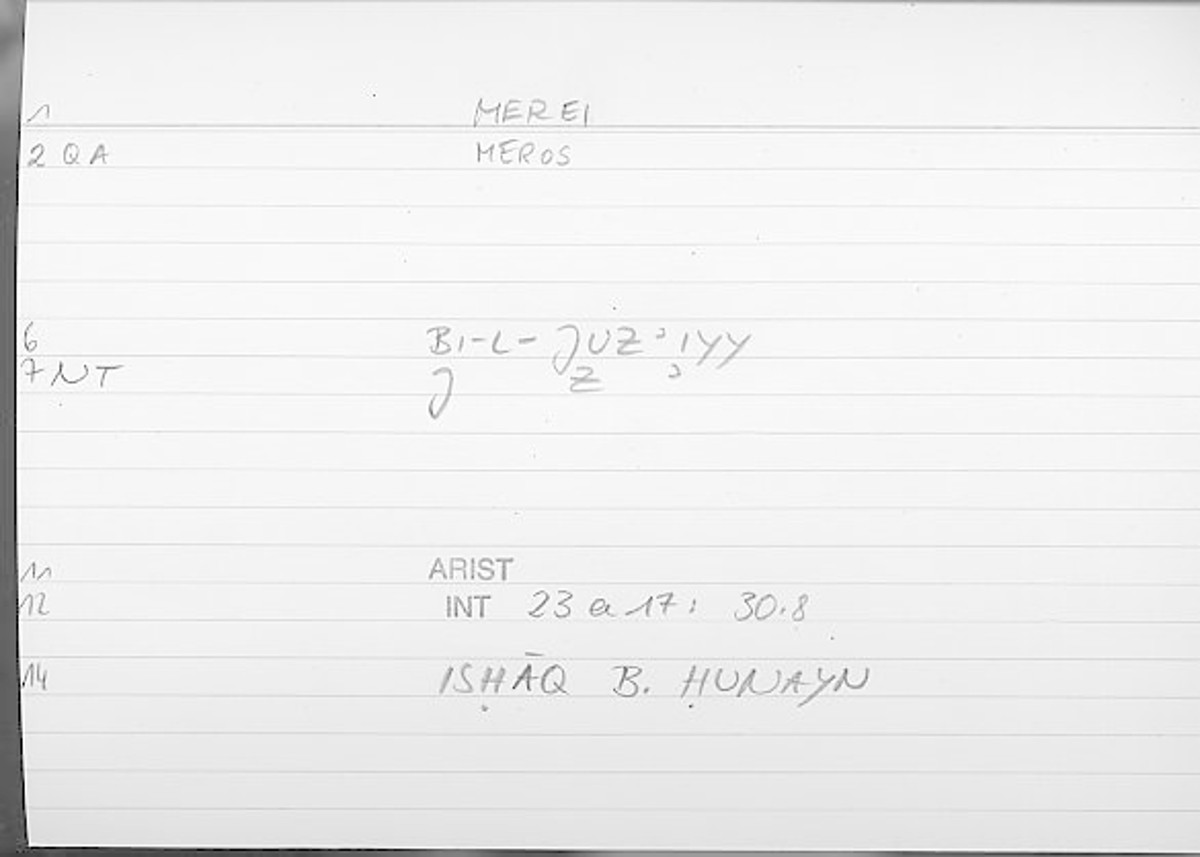 1 MEREI
2 QA MEROS
6 BI-L-JUZʾIYY
7 NT J Z ʾ
11 ARIST
12 INT 23 a 17: 30.8
14 ISḤĀQ B. ḤUNAYN